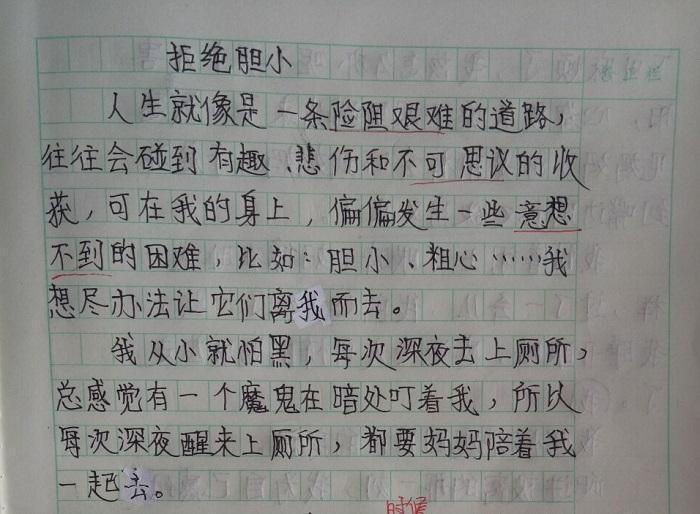 拒绝胆小
人生就像是一条险阻艰难的道路，
往往会碰到有趣、悲伤和不可思议的收
获，可在我的身上，偏偏发生一些意想
不到的困难，比如：胆小、粗心……我
想尽办法让它们离我而去。
我从小就怕黑，每次深夜去上厕所，
总感觉有一个魔鬼在暗处盯着我，所以
每次深夜醒来上厕所，都要妈妈陪着我
一起去。
时候